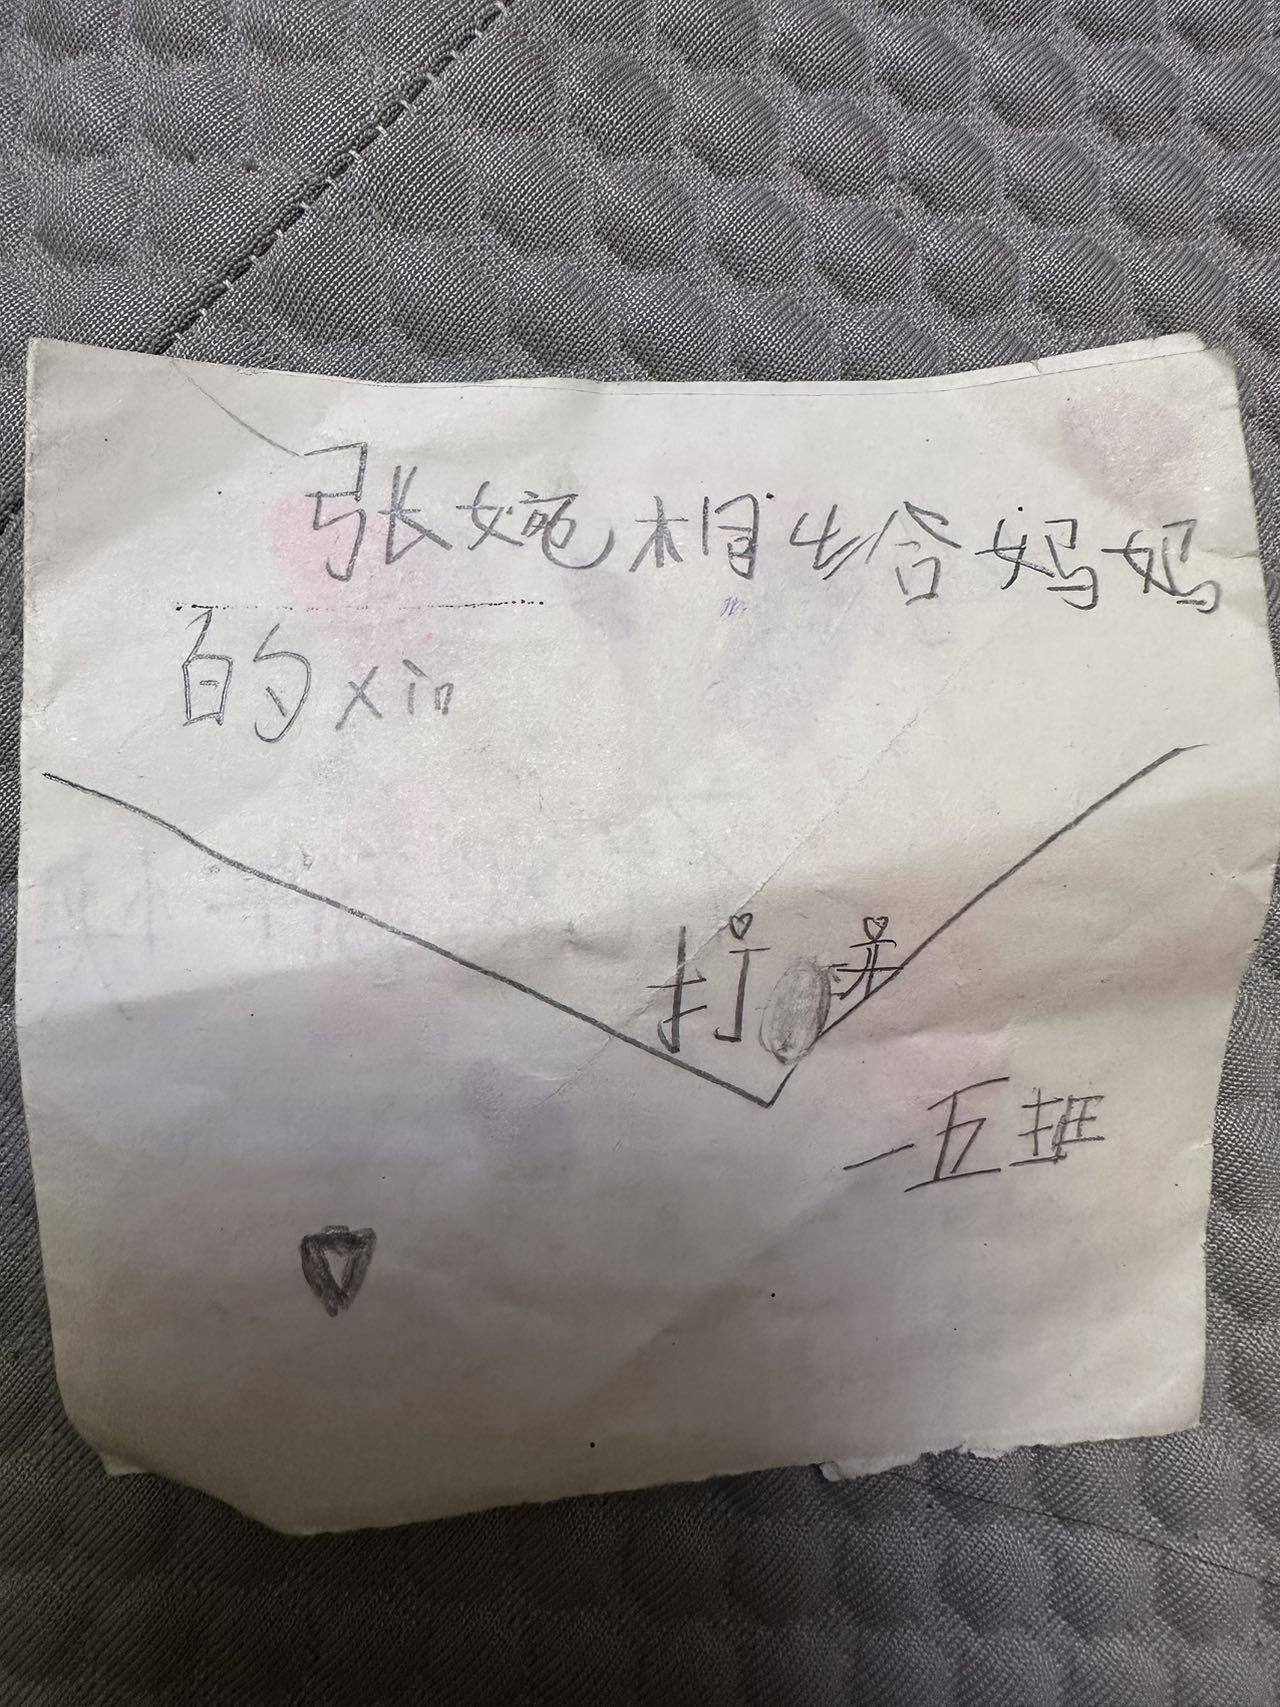 张婉相给妈妈
的xin
打开
一五班